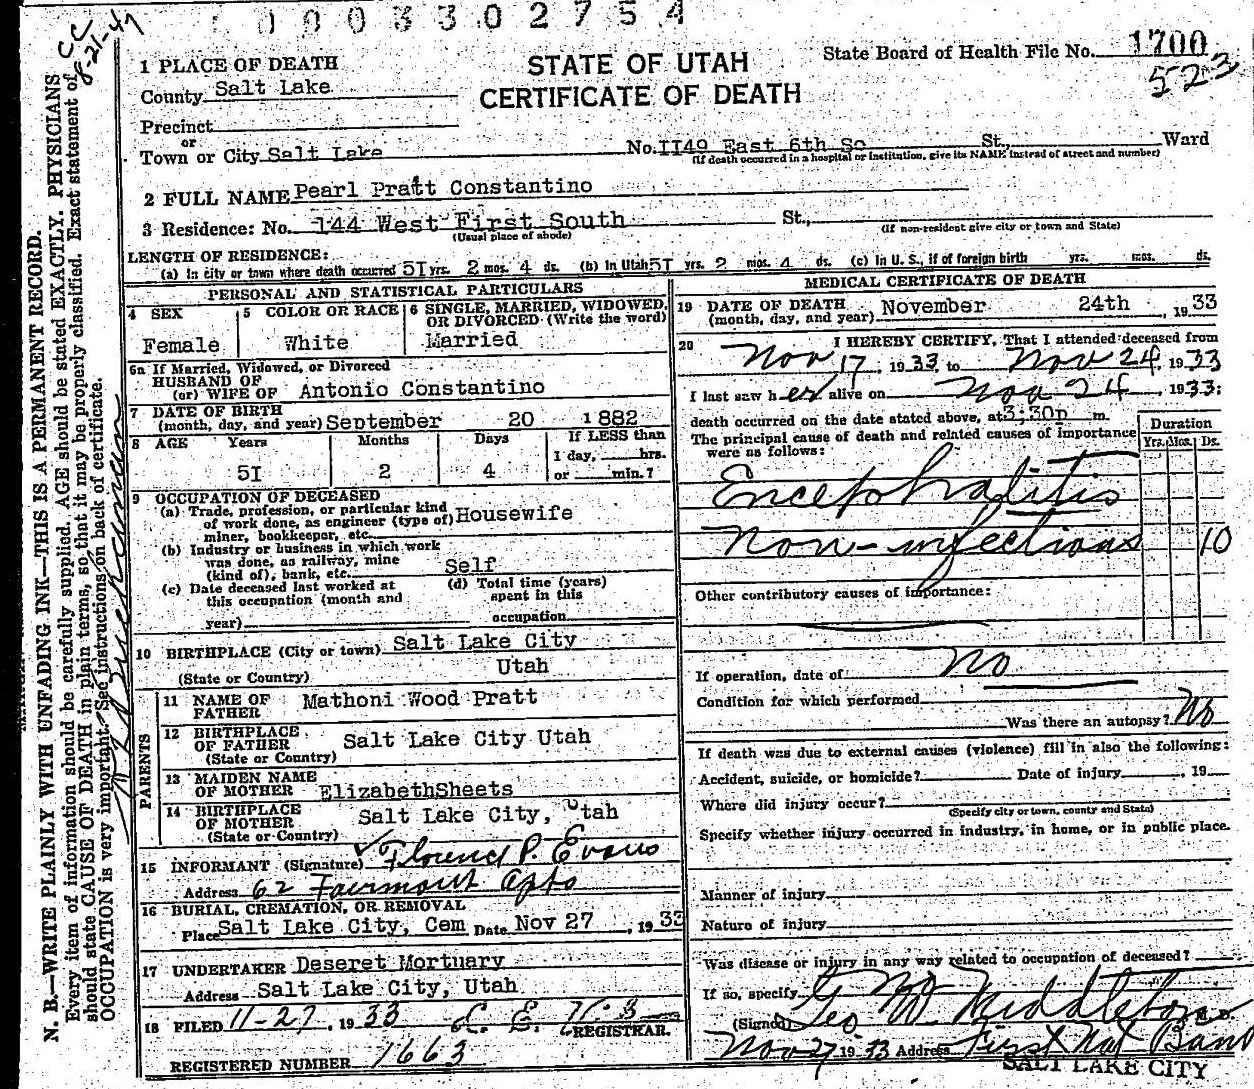 0003302754
CC
8-21-47
State Board of Health File No. 1700
523
STATE OF UTAH
CERTIFICATE OF DEATH
1 PLACE OF DEATH
County Salt Lake
Precinct
or
Town or City Salt Lake No. II49 East 6th So St., Ward
(If death occurred in a hospital or institution, give its NAME instead of street and number)
2 FULL NAME Pearl Pratt Constantino
3 Residence: No. 144 West First South St.,
(Usual place of abode) (If non-resident give city or town and State)
LENGTH OF RESIDENCE:
(a) In city or town where death occurred 5I yrs. 2 mos. 4 ds. (b) In Utah 5I yrs. 2 mos. 4 ds. (c) In U. S., if of foreign birth yrs. mos. ds.
PERSONAL AND STATISTICAL PARTICULARS
4 SEX
Female
5 COLOR OR RACE
White
6 SINGLE, MARRIED, WIDOWED, OR DIVORCED (Write the word)
Married
6a If Married, Widowed, or Divorced
HUSBAND OF
(or) WIFE OF Antonio Constantino
7 DATE OF BIRTH
(month, day, and year) September 20 1882
8 AGE Years Months Days If LESS than
1 day, hrs.
5I 2 4 or min.?
9 OCCUPATION OF DECEASED
(a) Trade, profession, or particular kind
of work done, as engineer (type of) Housewife
miner, bookkeeper, etc.
(b) Industry or business in which work
was done, as railway, mine Self
(kind of), bank, etc.
(c) Date deceased last worked at (d) Total time (years)
this occupation (month and spent in this
year) occupation
10 BIRTHPLACE (City or town) Salt Lake City
(State or Country) Utah
PARENTS
11 NAME OF FATHER Mathoni Wood Pratt
12 BIRTHPLACE OF FATHER Salt Lake City Utah
(State or Country)
13 MAIDEN NAME OF MOTHER ElizabethSheets
14 BIRTHPLACE OF MOTHER Salt Lake City, Utah
(State or Country)
15 INFORMANT (Signature) Florence P. Evans
Address 62 Fairmont Apts
16 BURIAL, CREMATION, OR REMOVAL
Place Salt Lake City, Cem Date Nov 27, 1933
17 UNDERTAKER Deseret Mortuary
Address Salt Lake City, Utah
18 FILED 11-27, 1933
REGISTRAR.
REGISTERED NUMBER 1663
MEDICAL CERTIFICATE OF DEATH
19 DATE OF DEATH
(month, day, and year) November 24th, 1933
20 I HEREBY CERTIFY, That I attended deceased from
Nov 17, 1933 to Nov 24, 1933
I last saw her alive on Nov 24, 1933:
death occurred on the date stated above, at 3;30p m.
The principal cause of death and related causes of importance
were as follows:
Duration
Yrs. Mos. Ds.
Encephalitis
Non-infectious 10
Other contributory causes of importance:
If operation, date of No
Condition for which performed
Was there an autopsy? No
If death was due to external causes (violence) fill in also the following:
Accident, suicide, or homicide? Date of injury, 19
Where did injury occur?
(Specify city or town, county and State)
Specify whether injury occurred in industry, in home, or in public place.
Manner of injury
Nature of injury
Was disease or injury in any way related to occupation of deceased?
If so, specify No
(Signed) Geo W. Middleton M. D.
Nov 27 1933 Address First Nat Bank
SALT LAKE CITY
N. B.—WRITE PLAINLY WITH UNFADING INK—THIS IS A PERMANENT RECORD.
Every item of information should be carefully supplied. AGE should be stated EXACTLY. PHYSICIANS
should state CAUSE OF DEATH in plain terms, so that it may be properly classified. Exact statement of
OCCUPATION is very important. See instructions on back of certificate.